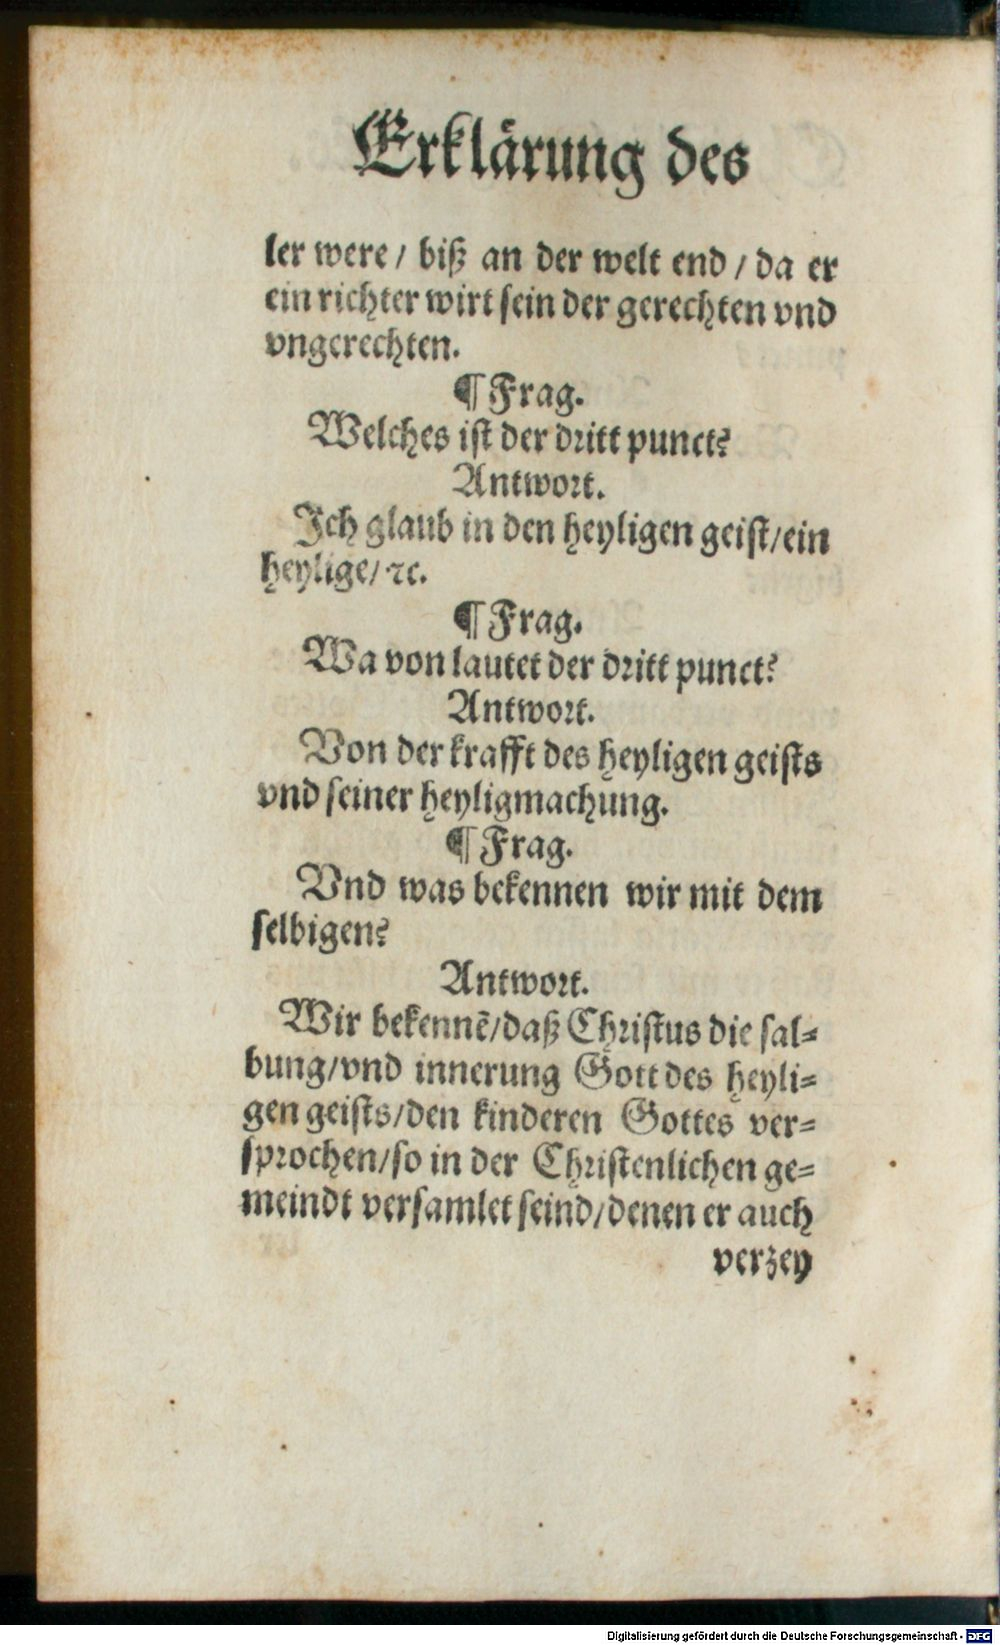 Erklärung des
ler were / biß an der welt end / da er
ein richter wirt sein der gerechten vnd
vngerechten.
¶ Frag.
Welches ist der dritt punct?
Antwort.
Ich glaub in den heyligen geist/ein
heylige/ ⁊c.
¶ Frag.
Wa von lautet der dritt punct?
Antwort.
Von der krafft des heyligen geists
vnd seiner heyligmachung.
¶ Frag.
Vnd was bekennen wir mit dem
selbigen?
Antwort.
Wir bekennẽ/daß Christus die sal⸗
bung/vnd innerung Gott des heyli⸗
gen geists/den kinderen Gottes ver⸗
sprochen/so in der Christenlichen ge⸗
meindt versamlet seind/denen er auch
verzey
Digitalisierung gefördert durch die Deutsche Forschungsgemeinschaft - DFG